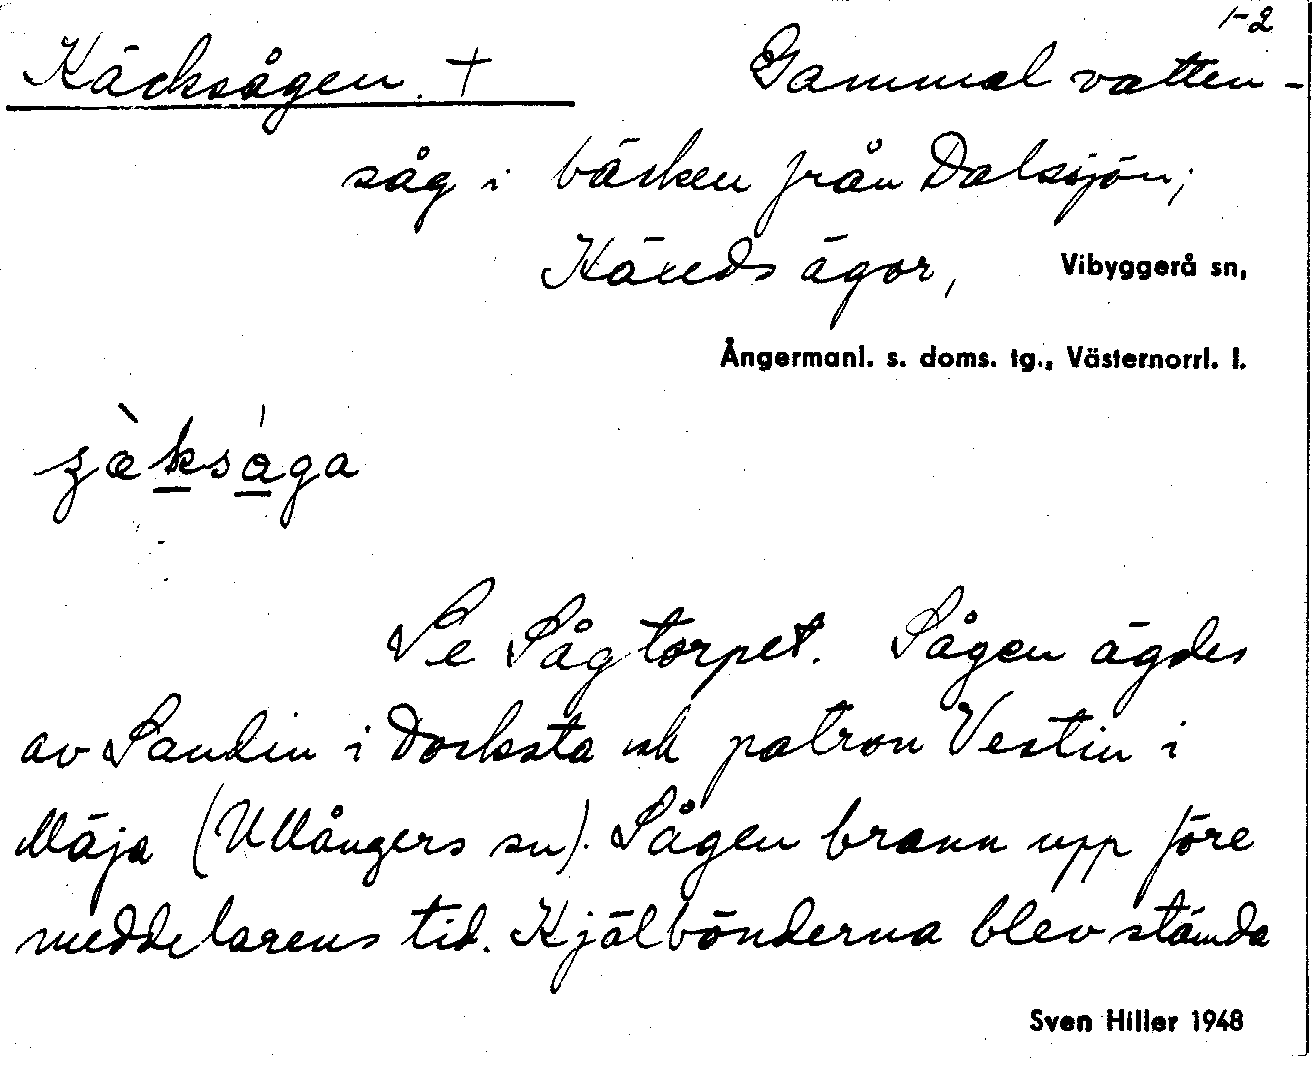 1-2
Käcksågen. + Gammal vatten-
såg i bäcken från Dalssjön;
Käxeds ägor, Vibyggerå sn,
Ångermanl. s. doms. tg., Västernorrl. l.
Se Sågtorpet. Sågen ägdes
av Sandin i Docksta och patron Vestin i
Mäja (Ullångers sn). Sågen brann upp före
meddelarens tid. Kjälbönderna blev stämda
Sven Hiller 1948